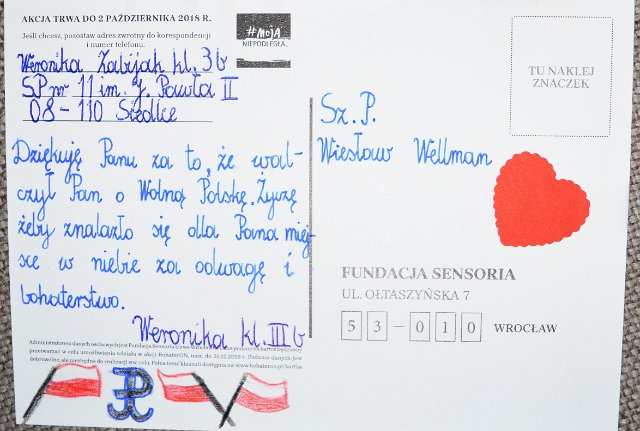 AKCJA TRWA DO 2 PAŹDZIERNIKA 2018 R.
Jeśli chcesz, pozostaw adres zwrotny do korespondencji
i numer telefonu.
#MOJA
NIEPODLEGŁA.
Weronika Zabijak kl. 3b
SP nr 11 im. J. Pawła II
08-110 Siedlce
Dziękuję Panu za to, że wal-
czył Pan o Wolną Polskę. Życzę
żeby znalazło się dla Pana miej-
sce w niebie za odwagę i
bohaterstwo.
Weronika kl. III b
Administratorem danych osobowych jest Fundacja Sensoria
przetwarzać w celu umożliwienia udziału w akcji BohaterON, max. do 31.12.2019 r. Podanie danych jest
dobrowolne, ale niezbędne do realizacji ww. celu. Pełna treść klauzuli dostępna na: www.bohateron.pl/kartka
TU NAKLEJ
ZNACZEK
Sz. P.
Wiesław Wellman
FUNDACJA SENSORIA
UL. OŁTASZYŃSKA 7
53-010 WROCŁAW